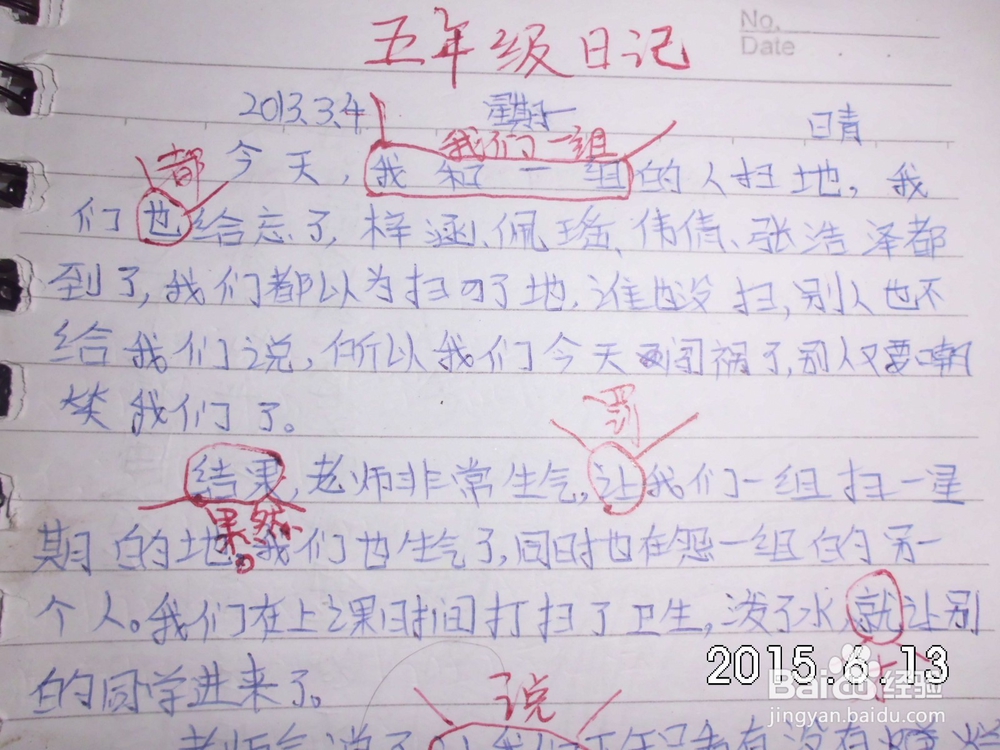 No.
Date
五年级日记
2013.3.4 星期一 日青
我们一组
都
今天,我和一组的人扫地,我
们也给忘了,梓涵、佩瑶、伟倩、张浩泽都
到了,我们都以为扫了地,谁也没扫,别人也不
给我们说,所以我们今天闯祸了,别人又要嘲
笑我们了。
罚
结果,老师非常生气,让我们一组扫一星
果然
期的地。我们也生气了,同时也在怨一组的另一
个人。我们在上课时间打扫了卫生,泼了水,就让别
的同学进来了。
2015.6.13
Baidu经验
jingyan.baidu.com
说
老师气说了